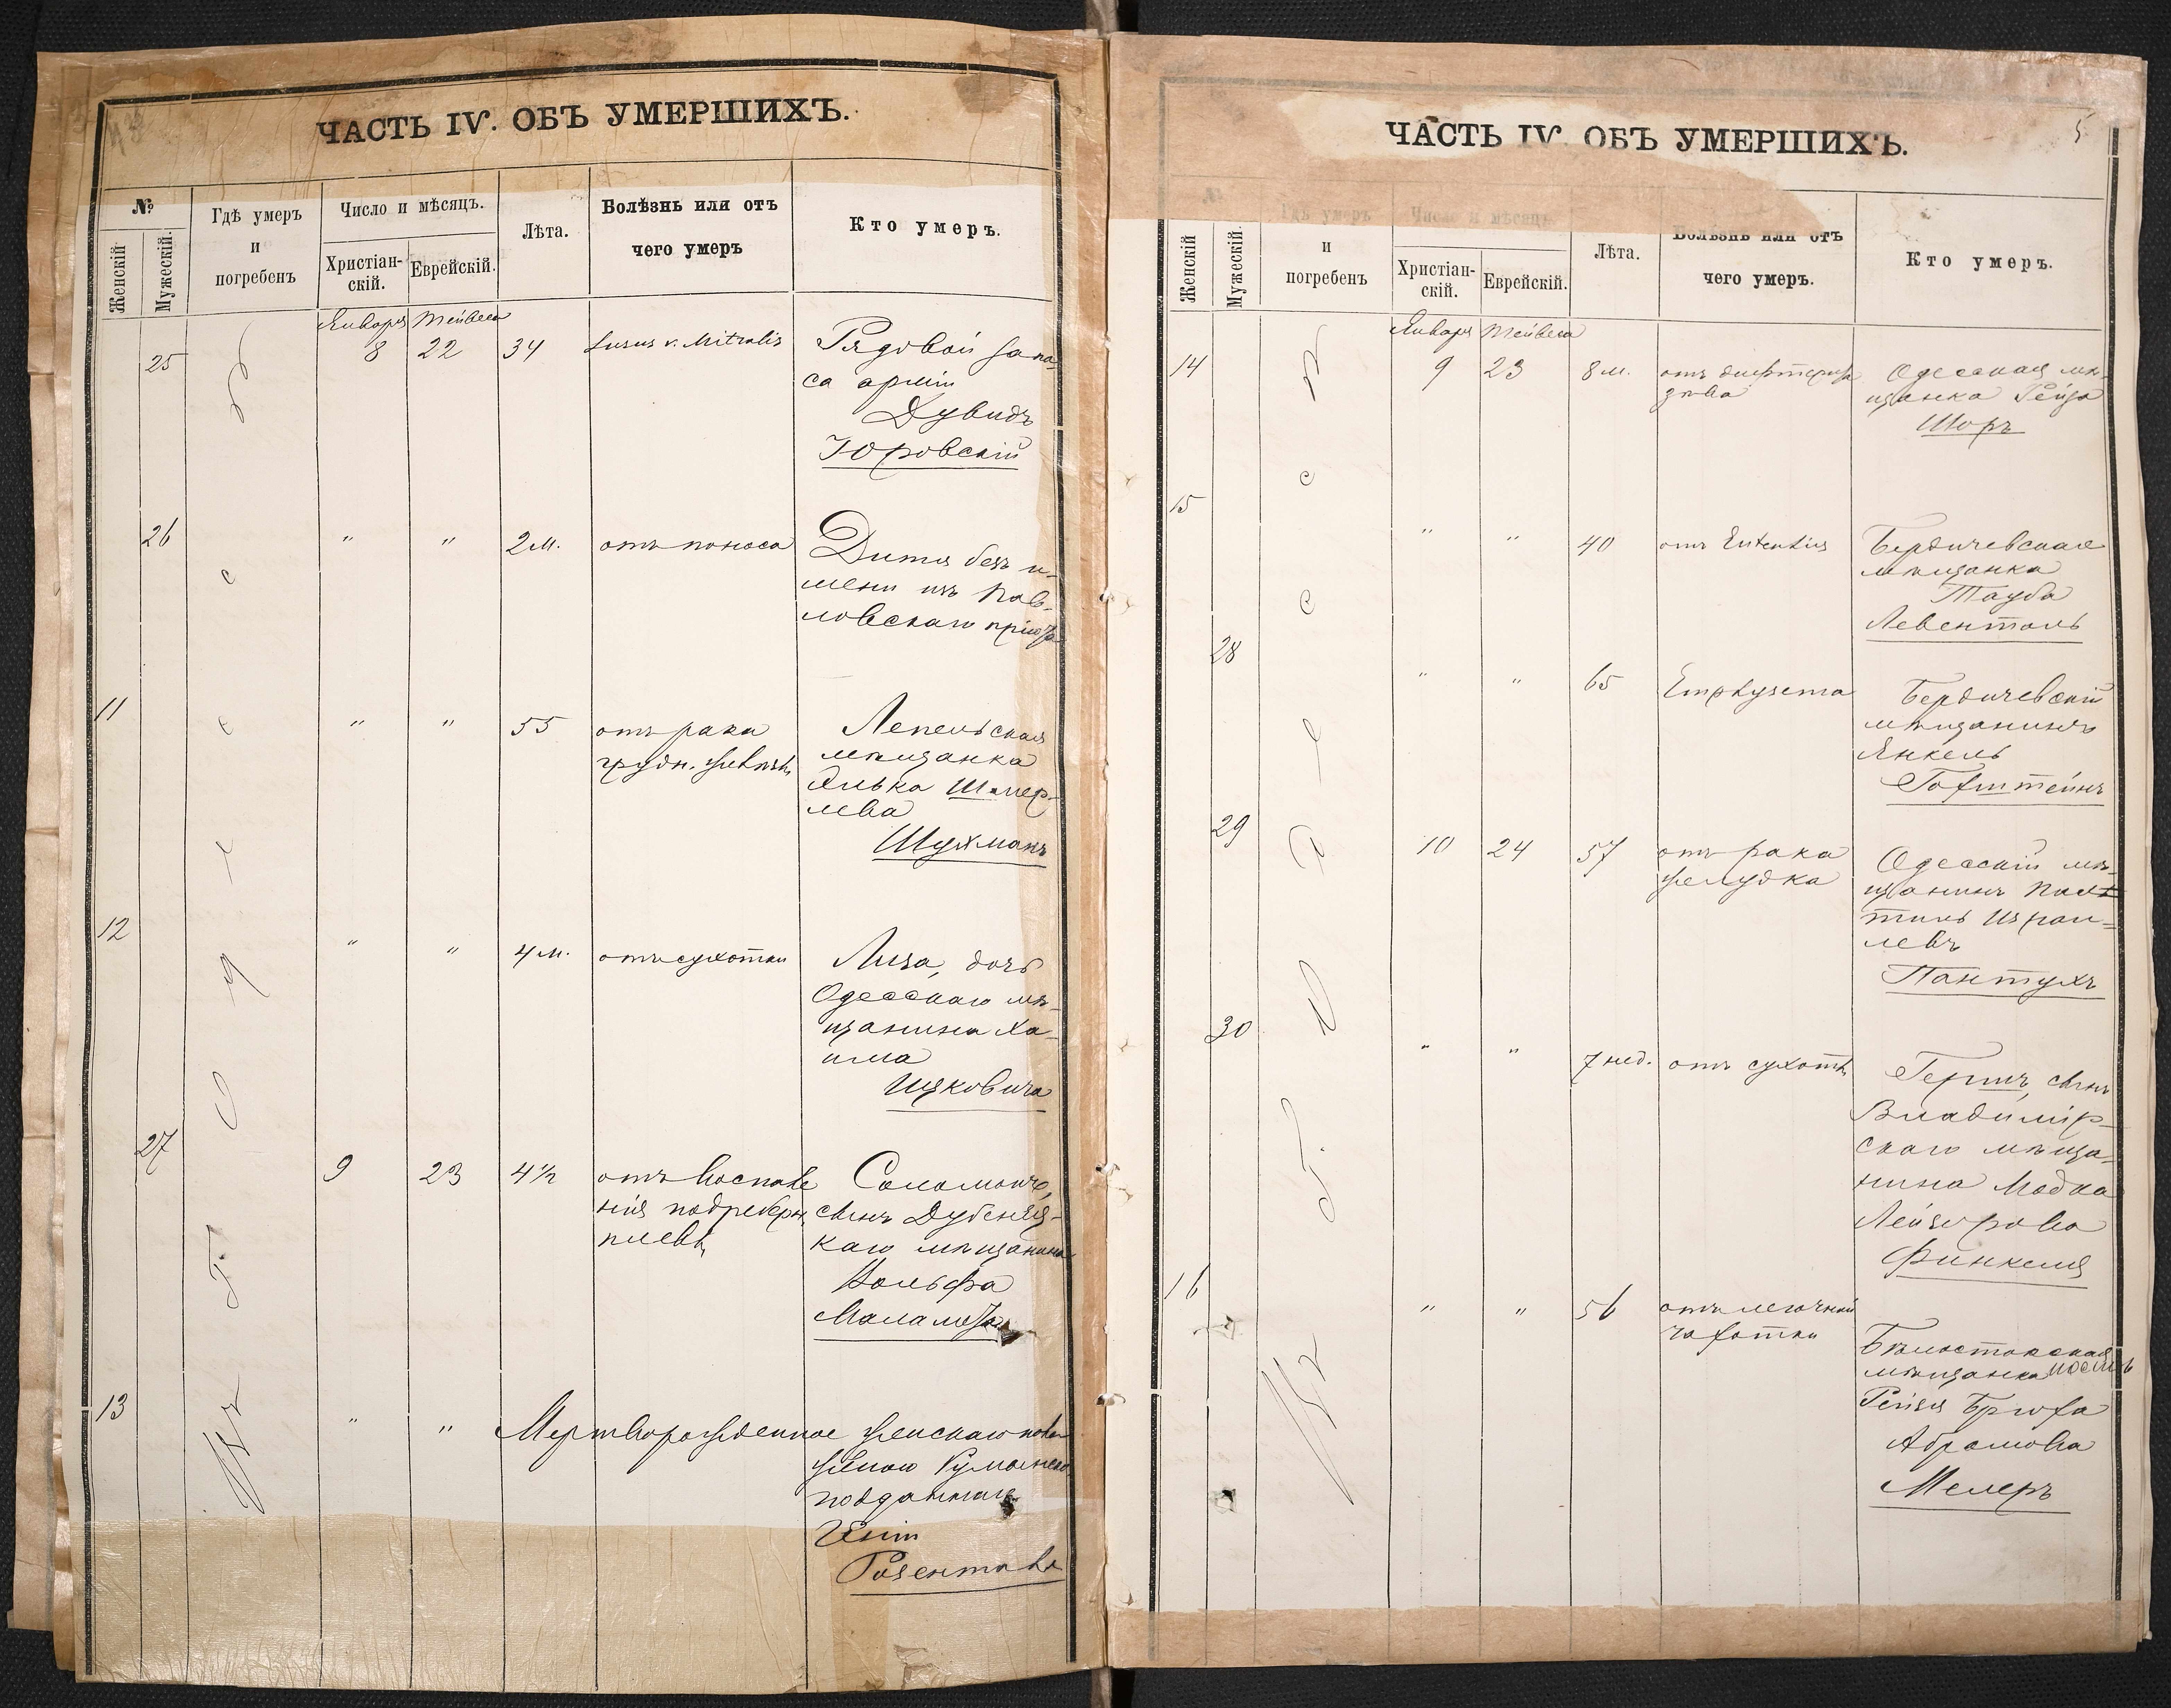 ЧАСТЬ IV. ОБЪ УМЕРШИХЪ.
№
Женскій
Мужескій.
Гдѣ умеръ
и
погребенъ
Число и мѣсяцъ.
Христіан-
скій.
Еврейскій.
Лѣта.
Болѣзнь или отъ
чего умеръ
Кто умеръ.
Января Тейвеса
25 8 22 34
Рядовой запа-
са арміи
Дувидъ
Юровскій
26 " " 2 м. отъ поноса
Дитя безъ и-
мени изъ Пав-
ловскаго пріюта
11 " " 55 отъ рака
грудн. железы
Лепельская
мѣщанка
Элька Шмер-
лева
Шухманъ
12 " " 4 м. отъ сухотки
Лиза, дочь
Одесскаго мѣ-
щанина Ха-
има
Ицковича
27 9 23 4½ отъ воспале
нія подреберн.
плевы
Соломонъ,
сынъ Дубенец-
каго мѣщанина
Вольфа
Маламета
13 " " Мертворожденное женскаго пола
женою Румынско
подданнаго
Розентова
Одесса
г.
ЧАСТЬ IV. ОБЪ УМЕРШИХЪ.
5
№
Женскій
Мужескій.
Гдѣ умеръ
и
погребенъ
Число и мѣсяцъ.
Христіан-
скій.
Еврейскій.
Лѣта.
Болѣзнь или отъ
чего умеръ.
Кто умеръ.
Января Тейвеса
14 9 23 8 м. отъ дифтерита
зѣва
Одесская мѣ-
щанка Рейза
Шоръ
15 " " 40 отъ
Бердичевская
мѣщанка
Тауба
Левенталь
28 " " 65 Emphysema
Бердичевскій
мѣщанинъ
Янкель
Гофштейнъ
29 10 24 57 отъ рака
желудка
Одесскій мѣ-
щанинъ
Израи-
левъ
Пантухъ
30 " " 7 нед. отъ сухотки
Гершъ, сынъ
Владимір-
скаго мѣща-
нина Модка
Лейзорова
Финкеля
16 " " 56 отъ легочной
чахотки
Бѣлостокская
мѣщанка
Рейзя Брюха
Абрамова
Мелеръ